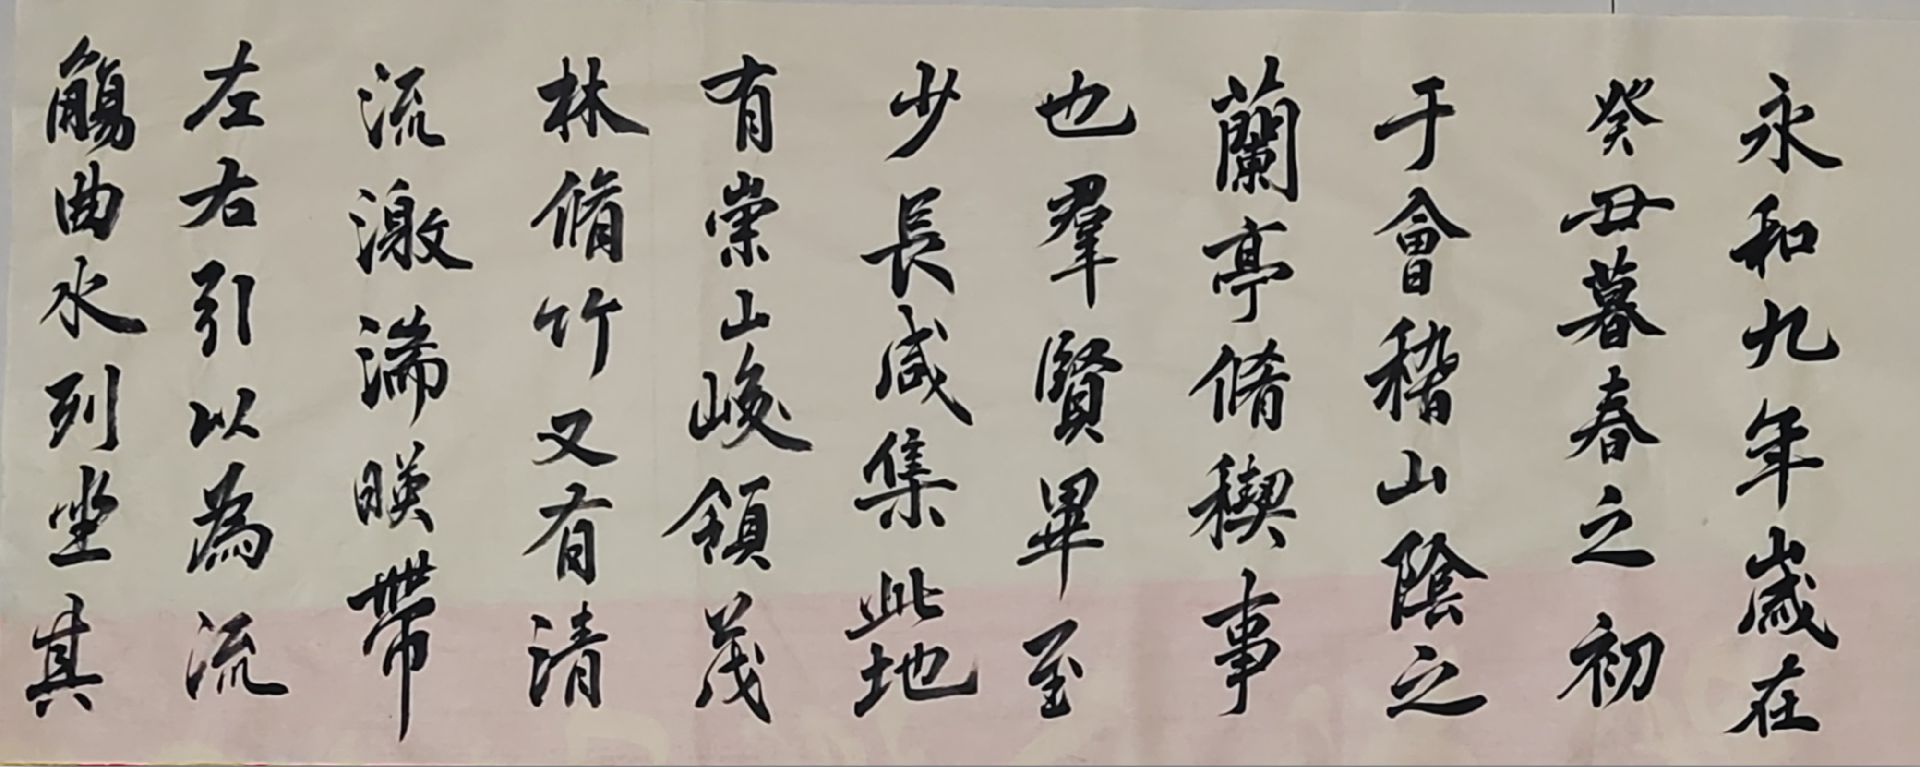 永和九年歲在
癸丑暮春之初
于會稽山陰之
蘭亭脩稧事
也羣賢畢至
少長咸集此地
有崇山峻領茂
林脩竹又有清
流激湍暎帶
左右引以為流
觴曲水列坐其